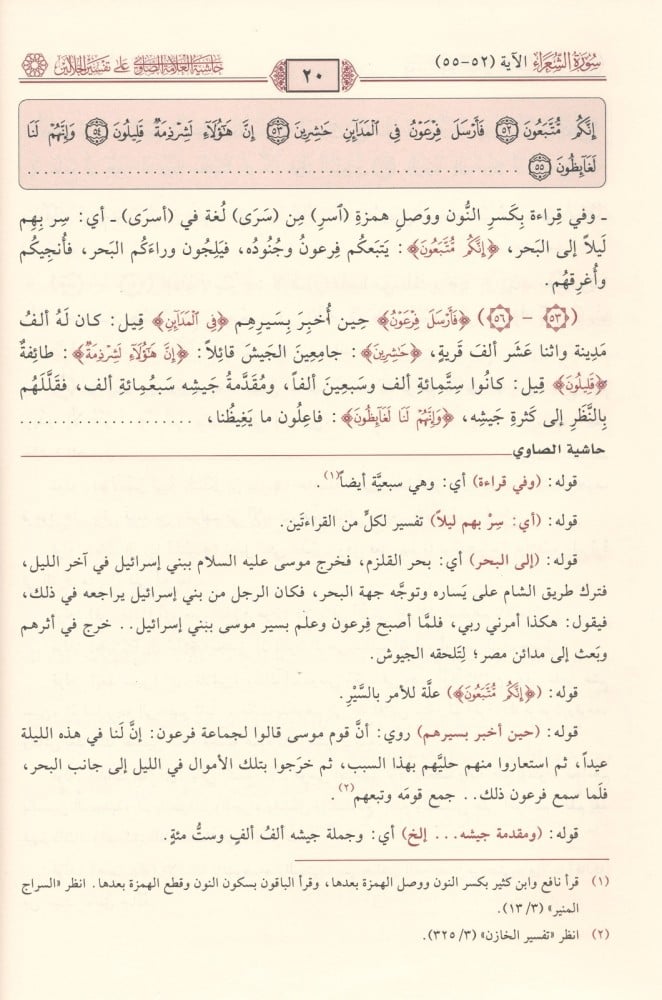 سُورَةُ الشُّعَرَاءِ الآية (٥٢-٥٥)
٢٠
حاشية العلامة الصاوي على تفسير الجلالين
إِنَّكُم مُّتَّبَعُونَ ٥٢ فَأَرْسَلَ فِرْعَوْنُ فِي الْمَدَآئِنِ حَٰشِرِينَ ٥٣ إِنَّ هَٰٓؤُلَآءِ لَشِرْذِمَةٌ قَلِيلُونَ ٥٤ وَإِنَّهُمْ لَنَا
لَغَآئِظُونَ ٥٥ ........................
ـ وفي قِراءة بِكَسرِ النُّون ووَصلِ همزةِ (اسرِ) مِن (سَرَى) لُغة في (أسرَى) ـ أي: سِر بِهِم
لَيلاً إلى البَحر، ﴿إِنَّكُم مُّتَّبَعُونَ﴾: يَتبَعكُم فِرعونُ وجُنُودُه، فيَلِجُون وراءَكُم البَحر، فأُنجِيكُم
وأُغرِقهُم.
(٥٣ - ٥٦) ﴿فَأَرْسَلَ فِرْعَوْنُ﴾ حِين أُخبِرَ بِسَيرِهِم ﴿فِي الْمَدَآئِنِ﴾ قِيل: كان لَهُ ألفُ
مَدِينة واثنا عَشَر ألفَ قَريةٍ، ﴿حَٰشِرِينَ﴾: جامِعِينَ الجَيشَ قائِلاً: ﴿إِنَّ هَٰٓؤُلَآءِ لَشِرْذِمَةٌ﴾: طائِفةٌ
﴿قَلِيلُونَ﴾ قِيل: كانُوا سِتَّمِائةِ ألف وسَبعِينَ ألفاً، ومُقدَّمةُ جَيشِه سَبعُمِائةِ ألف، فقَلَّلَهُم
بِالنَّظَرِ إلى كَثرةِ جَيشِه، ﴿وَإِنَّهُمْ لَنَا لَغَآئِظُونَ﴾: فاعِلُون ما يَغِيظُنا، ....................
حاشية الصاوي
قوله: (وفي قراءة) أي: وهي سبعيَّة أيضاً(١).
قوله: (أي: سِرْ بهم ليلاً) تفسير لكلٍّ من القراءتَين.
قوله: (إلى البحر) أي: بحر القلزم، فخرج موسى عليه السلام ببني إسرائيل في آخر الليل،
فترك طريق الشام على يَساره وتوجَّه جهة البحر، فكان الرجل من بني إسرائيل يراجعه في ذلك،
فيقول: هكذا أمرني ربي، فلمَّا أصبح فِرعون وعلم بسير موسى ببني إسرائيل.. خرج في أثرهم
وبَعث إلى مدائن مصر؛ لِتَلحقه الجيوش.
قوله: (﴿إِنَّكُم مُّتَّبَعُونَ﴾) علَّة للأمر بالسَّيْرِ.
قوله: (حين أخبر بسيرهم) روي: أنَّ قوم موسى قالوا لجماعة فرعون: إنَّ لَنا في هذه الليلة
عيداً، ثم استعاروا منهم حليَّهم بهذا السبب، ثم خرَجوا بتلك الأموال في الليل إلى جانب البحر،
فلَما سمع فرعون ذلك.. جمع قومَه وتبعهم(٢).
قوله: (ومقدمة جيشه... إلخ) أي: وجملة جيشه ألفُ ألفٍ وستُّ مئةٍ.
(١) قرأ نافع وابن كثير بكسر النون ووصل الهمزة بعدها، وقرأ الباقون بسكون النون وقطع الهمزة بعدها. انظر «السراج
المنير» (٣/ ١٣).
(٢) انظر «تفسير الخازن» (٣/ ٣٢٥).